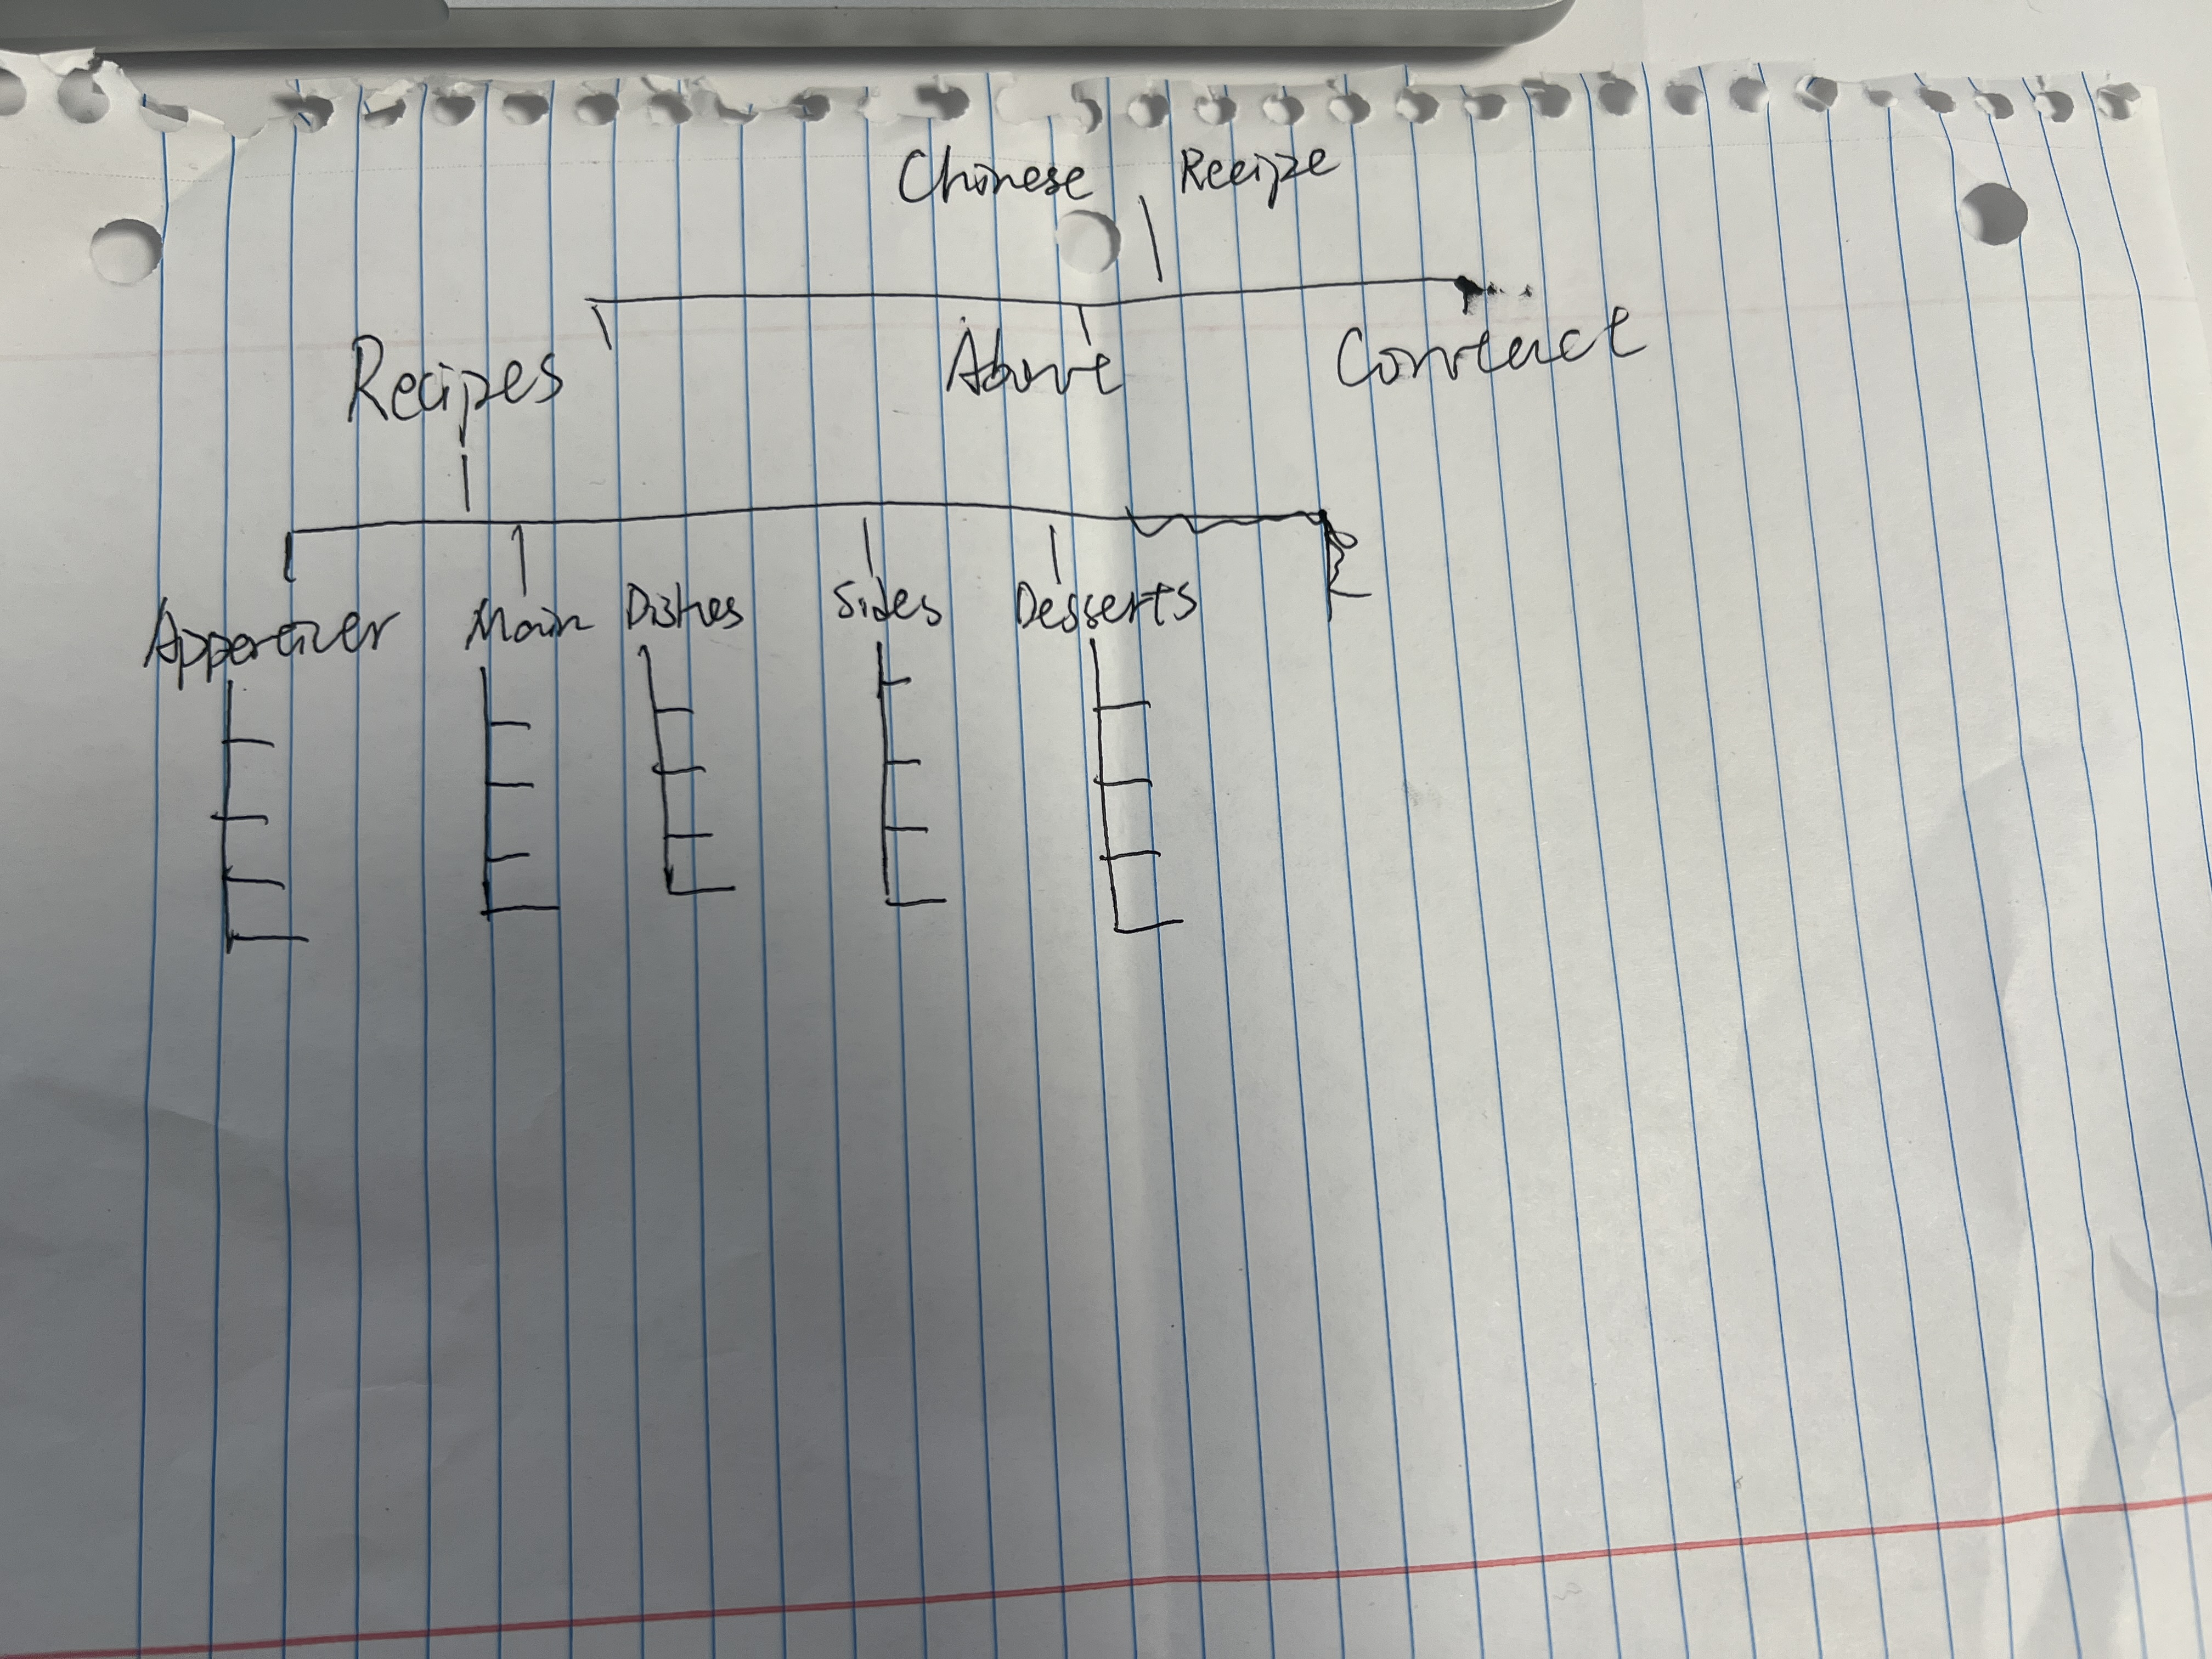 Chinese Recipe
Recipes Aboute Contenct
Appenizer Main Dishes Sides Desserts